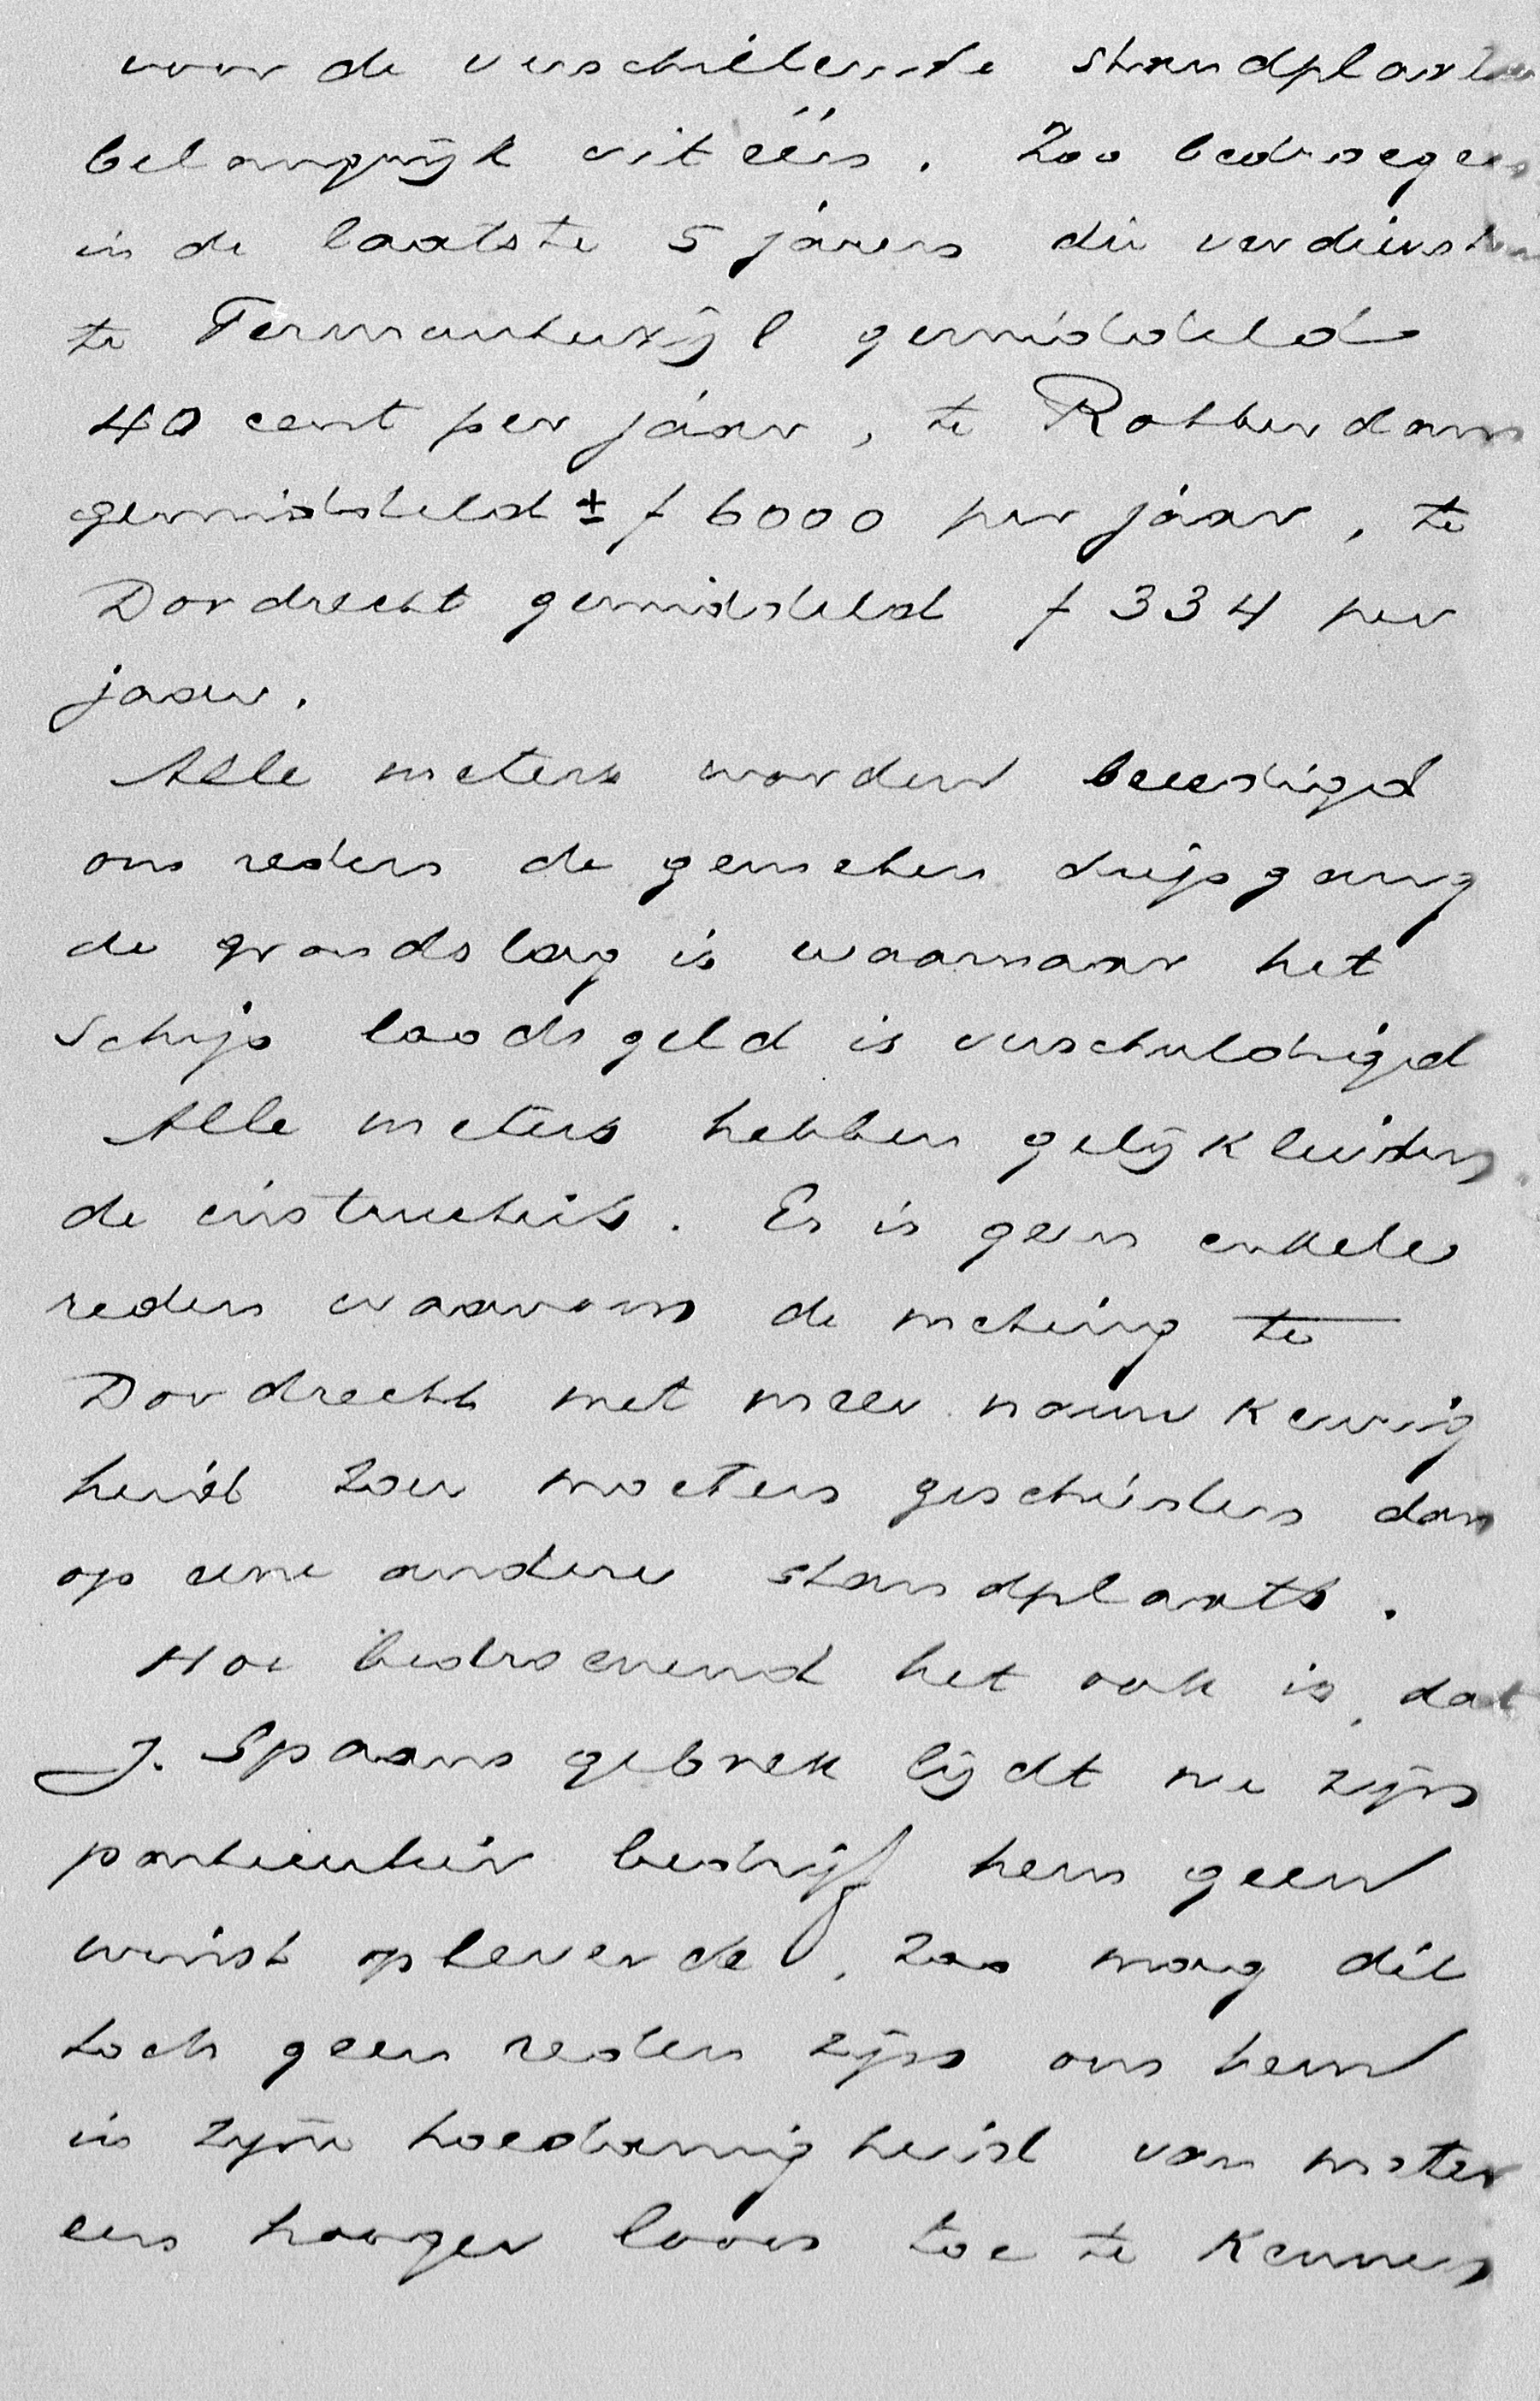 voor de verschillende standplaatsen
belangrijk uitéén. Zoo bedroegen
in de laatste 5 jaren die verdiensten
te Termunterzijl gemiddeld
40 cent per jaar, te Rotterdam
gemiddeld ± f 6000 per jaar, te
Dordrecht gemiddeld f 334 per
jaar.
Alle meters worden beeedigd
om reden de gemeten diepgang
de grondslag is waarnaar het
schip loodsgeld is verschuldigd
Alle meters hebben gelijkluiden
de instructies. Er is geen enkele
reden waarom de meting te
Dordrecht met meer nauwkeurig
heid zou moeten geschieden dan
op eene andere standplaats.
Hoe bedroevend het ook is, dat
J. Spaans gebrek lijdt nu zijn
particulier bedrijf hem geen
winst opleverde, zoo mag dit
toch geen reden zijn om hem
in zijne hoedanigheid van meter
een hooger loon toe te kennen